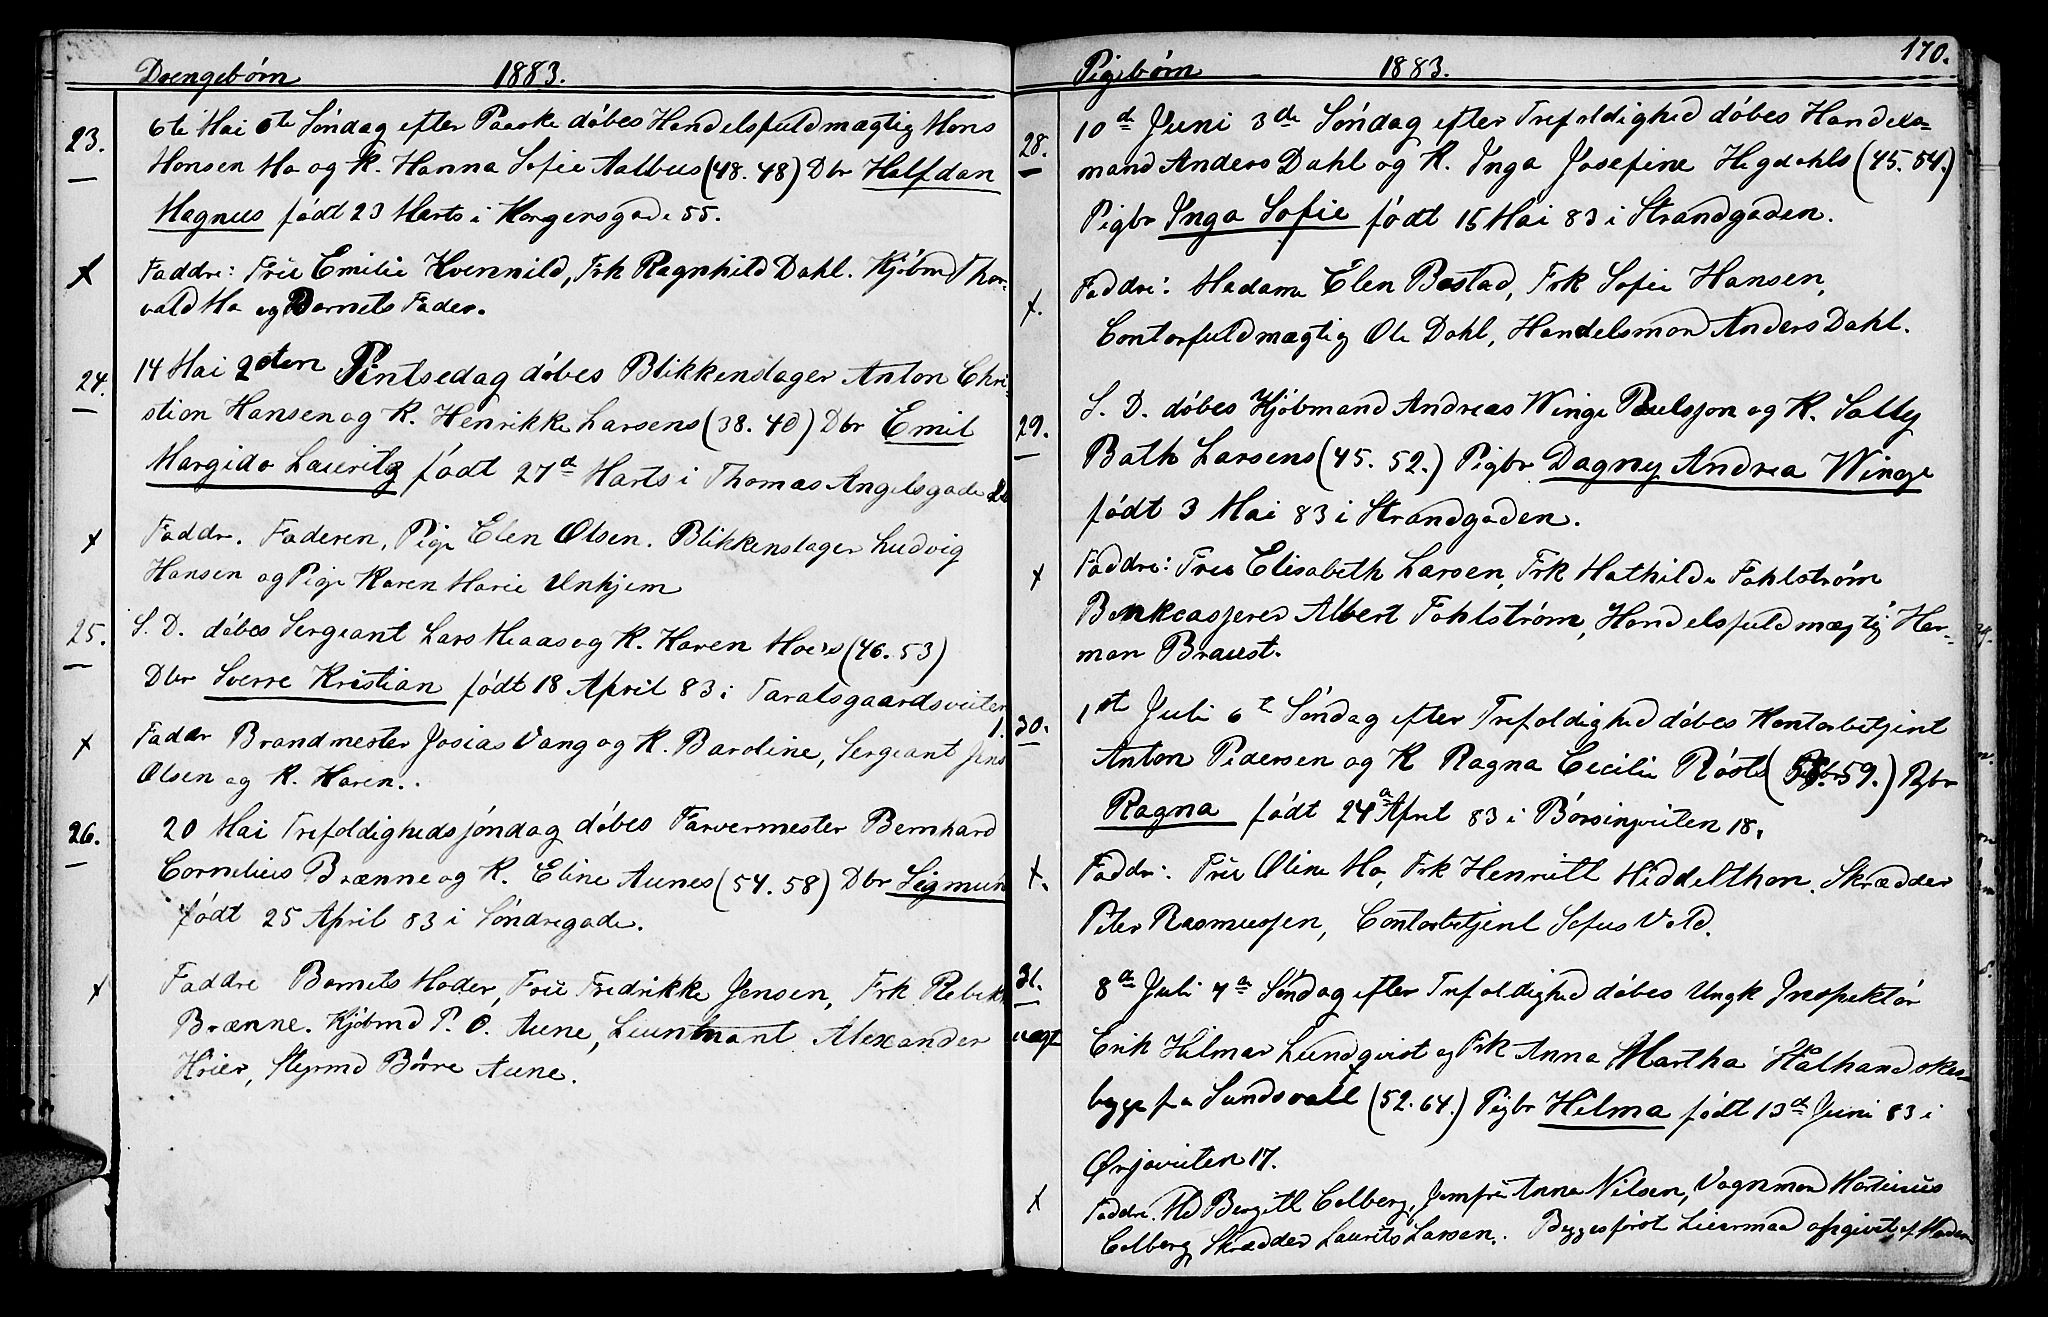 Drengebørn 1883.
23. 6te Mai 6te Søndag efter Paaske døbes Handelsfuldmægtig Mons
Monsen Mo og K. Hanna Sofie Aalbus (48. 48) Dbr Halfdan
Magnus født 23 Marts i Kongensgade 55.
x Faddre: Frue Emilie Kvennild, Frk Ragnhild Dahl. Kjøbmd Thor-
vald Mo og Barnets Fader.
24. 14 Mai 2den Pintsedag døbes Blikkenslager Anton Chri-
stian Hansen og K. Henrikke Larsens (38. 40) Dbr Emil
Margido Lauritz født 27d Marts i Thomas Angelsgade
x Faddr. Faderen, Pige Elen Olsen. Blikkenslager Ludvig
Hansen og Pige Karen Marie Unkjem
25. S. D. døbes Sergeant Lars Maas og K. Karen Moe's (46. 53)
Dbr Sverre Kristian født 18 April 83 i Taraldsgaardsveiten
1.
x Faddr Brandmester Josias Vang og K. Baroline, Sergeant Jens
Olsen og K. Karen.
26. 20 Mai Trefoldighedssøndag døbes Farvermester Bernhard
Cornelius Brænne og K. Eline Aunes (54. 58) Dbr Sigmun
født 25 April 83 i Søndregade.
x Faddre Barnets Moder, Frue Fredrikke Jensen, Frk Rebek
Brænne. Kjøbmd P. O. Aune, Lieuntnant Alexander
Krier, Styrmd Børre Aune.
Pigebørn 1883. 170.
28. 10d Juni 3de Søndag efter Trefoldighed døbes Handels-
mand Anders Dahl og K. Inga Josefine Hegdahls (45. 54.)
Pigbr Inga Sofie født 15 Mai 83 i Strandgaden.
x. Faddre: Madame Elen Bostad, Frk Sofie Hansen,
Contorfuldmægtig Ole Dahl, Handelsmand Anders Dahl.
29. S. D. døbes Kjøbmand Andreas Winge Paulssøn og K. Sally
Bath Larsens (45. 52.) Pigbr Dagny Andrea Winge
født 3 Mai 83 i Strandgaden.
x Faddre: Frue Elisabeth Larsen, Frk Mathilde Fahlstrøm
Bankcasserer Albert Fahlstrøm, Handelsfuldmægtig Her-
man Braust.
30. 1st Juli 6te Søndag efter Trefoldighed døbes Kontorbetjent
Anton Pedersen og K Ragna Cecilie Røsts ( 59.) Pgbr
Ragna født 24d April 83 i Børsinsveiten 18.
x. Faddr: Frue Oline Mo, Frk Henriette Middelthon, Skrædder
Peter Rasmussen, Contorbetjent Sofus Vold.
31. 8de Juli 7de Søndag efter Trefoldighed døbes Ungk Inspektør
uægt Erik Hilmar Lundqvist og Frk Anna Martha Stålhandske
bygge fra Sundsvall (52. 64.) Pigbr Hilma født 13de Juni 83 i
Ørjaveiten 17.
x Faddre. Md Bergitte Colberg, Jomfru Anna Nilsen, Vognmand Martinus
Colberg, Skrædder Laurits Larsen. Beggesførst Leiermaal opgivet af Moderen